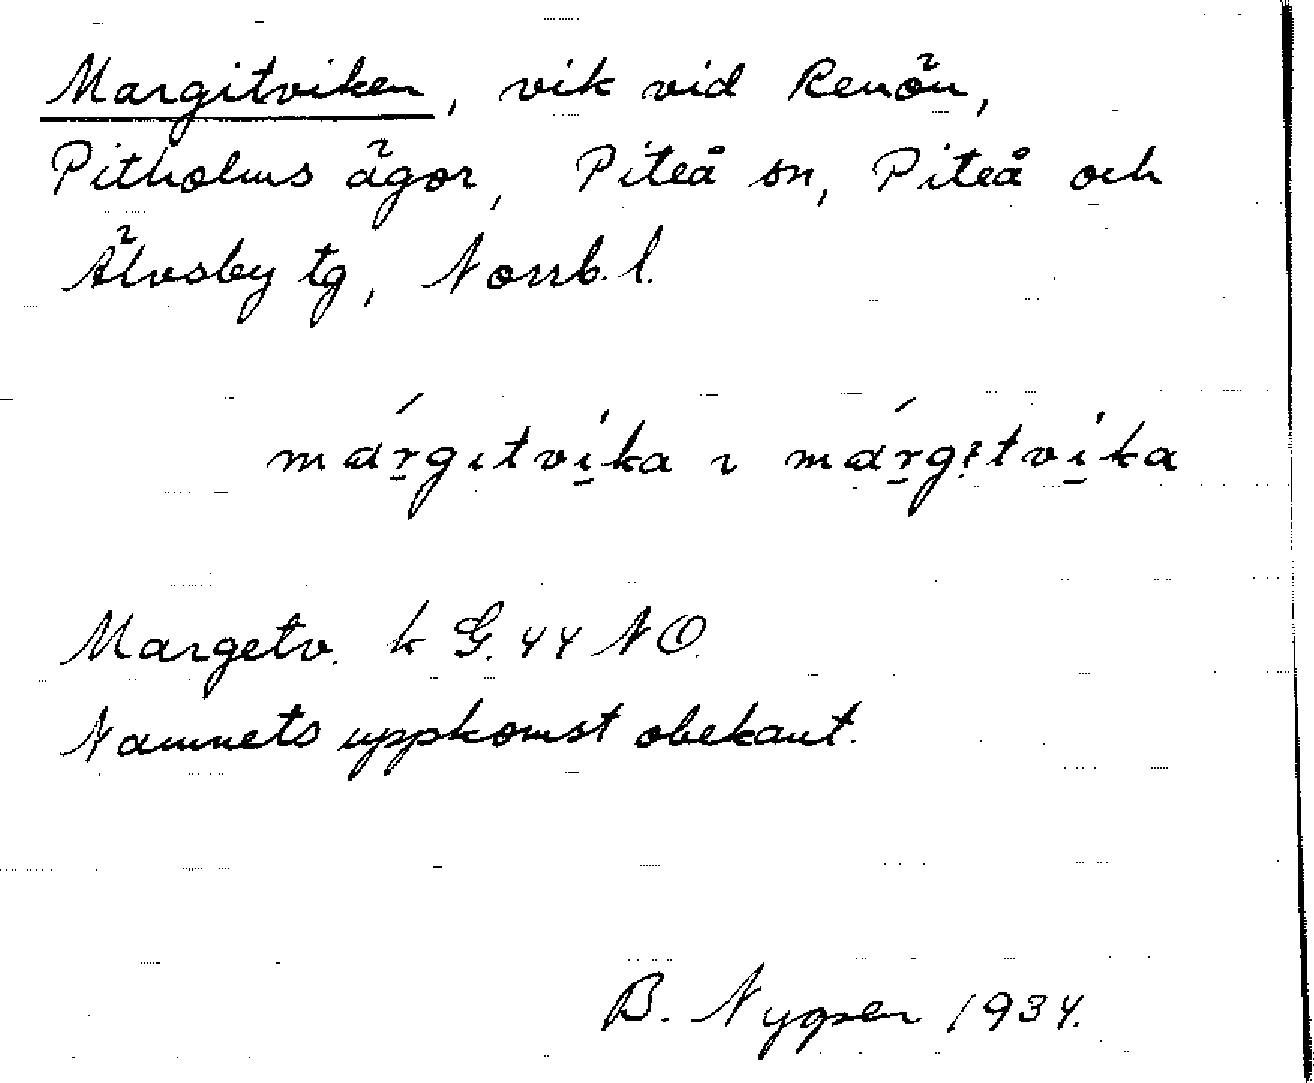 Margitviken, vik vid Renön,
Pitholms ägor, Piteå sn, Piteå och
Älvsby tg, Norrb. l.
márgɩtvíka ɩ márgɩtvíka
Margetv. k G. 44 NO.
Namnets uppkomst obekant.
B. Nygren 1934.